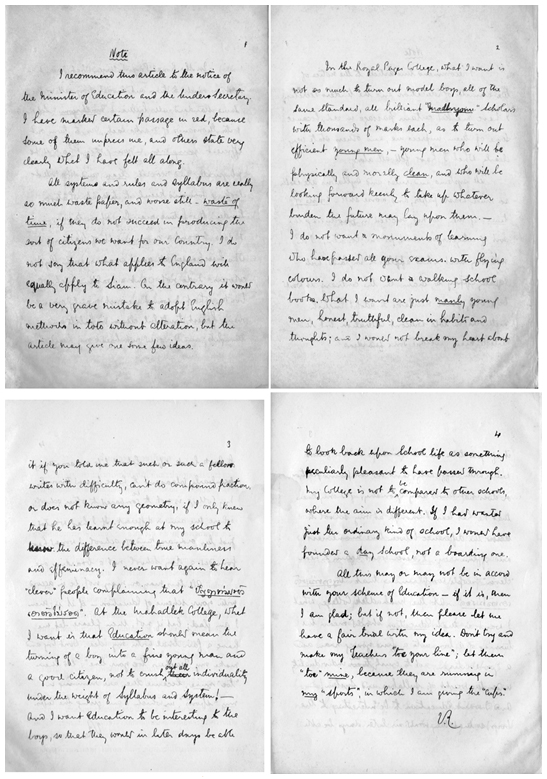 1
Note
I recommend this article to the notice of
the Minister of Education and the Under Secretary.
I have marked certain passage in red, because
some of them impress me, and others state very
clearly what I have felt all along.
All systems and rules and syllabus are really
so much waste paper, and worse still – waste of
time, if they do not succeed in producing the
sort of citizens we want for our Country. I do
not say that what applies to England will
equally apply to Siam. On the contrary it would
be a very grave mistake to adopt English
methods in toto without alteration, but the
article may give one some few ideas.
2
In the Royal Pages College, what I want is
not so much to turn out model boys, all of the
same standard, all brilliant scholars
with thousands of marks each, as to turn out
efficient young men, – young men who will be
physically and morally clean, and who will be
looking forward keenly to take up whatever
burden the future may lay upon them. –
I do not want monuments of learning
who have passed all your exams. with flying
colours. I do not want a walking school
books. What I want are just manly young
men, honest, truthful, clean in habits and
thoughts; and I would not break my heart about
3
it if you told me that such or such a fellow
writes with difficulty, can't do compound fraction
or does not know any geometry, if I only knew
that he has learnt enough at my school to
know the difference between true manliness
and effeminacy. I never want again to hear
"clever" people complaining that
At the Mahadlek College, what
I want is that Education should mean the
turning of a boy into a fine young man and
a good citizen, not to crush out all individuality
under the weight of Syllabus and System! –
And I want Education to be interesting to the
boys, so that they would in later days be able
4
to look back upon School life as something
peculiarly pleasant to have passed through.
My College is not to be compared to other schools,
where the aim is different. If I had wanted
just the ordinary kind of school, I would have
founded a day school, not a boarding one.
All this may or may not be in accord
with your scheme of Education – if it is, then
I am glad; but if not, then please let me
have a fair trial with my idea. Don't try and
make my teachers "toe your line"; let them
"toe" mine, because they are running in
my "sports", in which I am giving the "cups".
V.R.